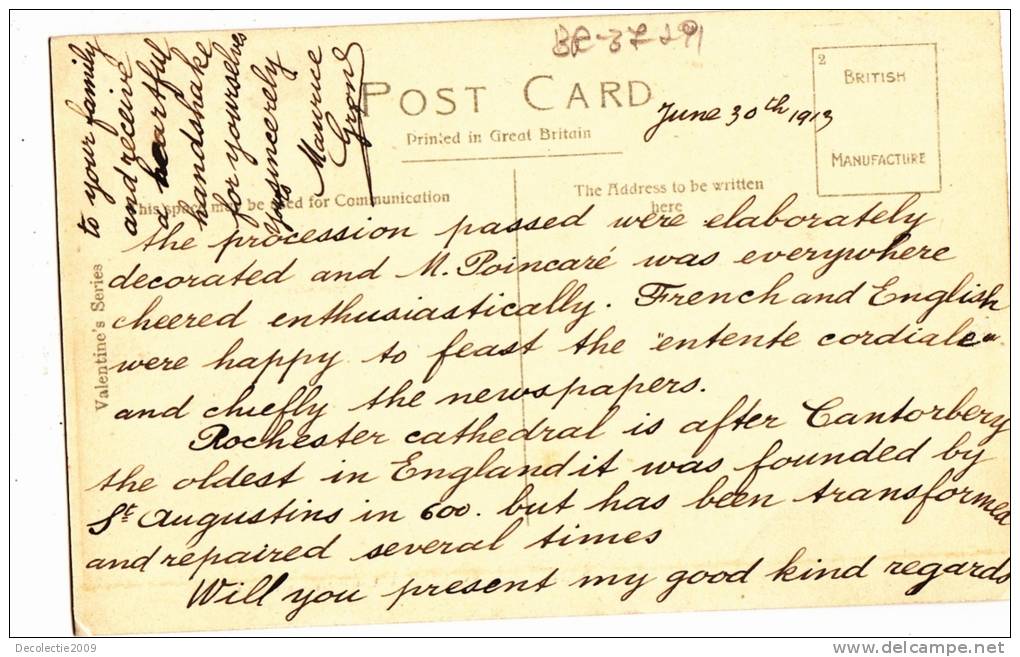 BR-3729
POST CARD
Printed in Great Britain
2
BRITISH
MANUFACTURE
June 30th 1913
This space may be used for Communication
The Address to be written
here
Valentine's Series
the procession passed were elaborately
decorated and M. Poincaré was everywhere
cheered enthusiastically. French and English
were happy to feast the "entente cordiale"
and chiefly the newspapers.
Rochester cathedral is after Cantorbery
the oldest in England it was founded by
St Augustins in 600. but has been transformed
and repaired several times
Will you present my good kind regards
to your family
and receive
a heartful
handshake
for yourselves
Yours sincerely
Maurice
Decolectie2009
www.delcampe.net